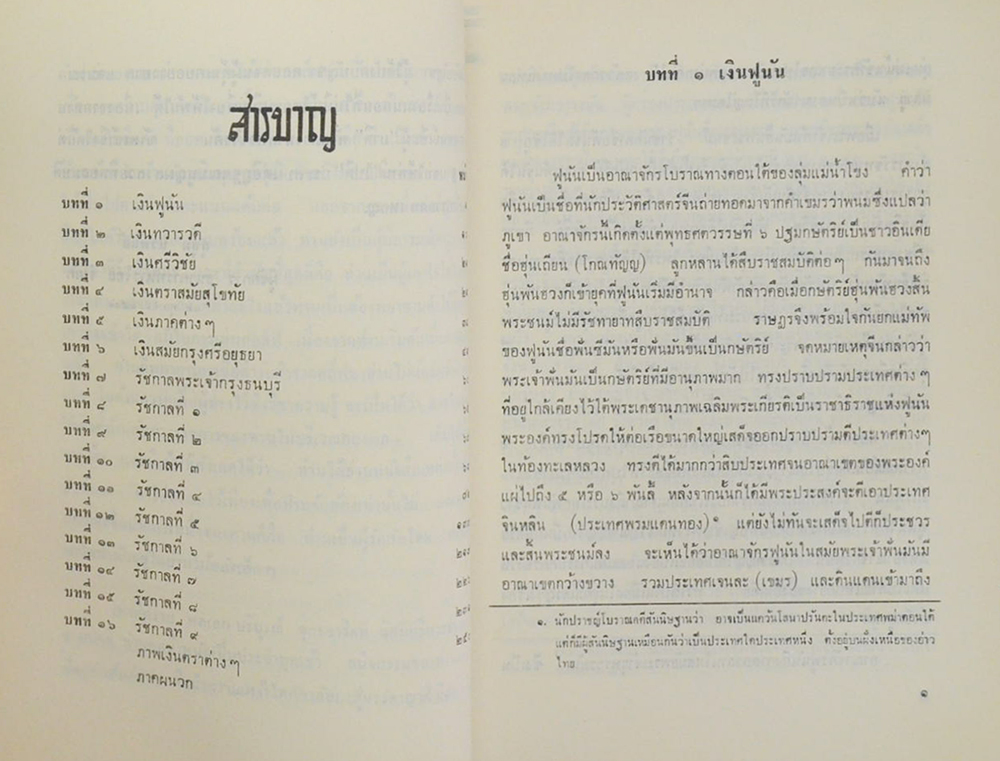 สารบาญ
บทที่ ๑ เงินฟูนัน
บทที่ ๒ เงินทวารวดี
บทที่ ๓ เงินศรีวิชัย
บทที่ ๔ เงินตราสมัยสุโขทัย
บทที่ ๕ เงินภาคต่าง ๆ
บทที่ ๖ เงินสมัยกรุงศรีอยุธยา
บทที่ ๗ รัชกาลพระเจ้ากรุงธนบุรี
บทที่ ๘ รัชกาลที่ ๑
บทที่ ๙ รัชกาลที่ ๒
บทที่ ๑๐ รัชกาลที่ ๓
บทที่ ๑๑ รัชกาลที่ ๔
บทที่ ๑๒ รัชกาลที่ ๕
บทที่ ๑๓ รัชกาลที่ ๖
บทที่ ๑๔ รัชกาลที่ ๗
บทที่ ๑๕ รัชกาลที่ ๘
บทที่ ๑๖ รัชกาลที่ ๙
ภาพเงินตราต่าง ๆ
ภาคผนวก
บทที่ ๑ เงินฟูนัน
ฟูนันเป็นอาณาจักรโบราณทางตอนใต้ของลุ่มแม่น้ำโขง คำว่า
ฟูนันเป็นชื่อที่นักประวัติศาสตร์จีนถ่ายทอดมาจากคำเขมรว่าพนมซึ่งแปลว่า
ภูเขา อาณาจักรนี้เกิดตั้งแต่พุทธศตวรรษที่ ๖ ปฐมกษัตริย์เป็นชาวอินเดีย
ชื่อฮุ่นเถียน (โกณทัญญ) ลูกหลานได้สืบราชสมบัติต่อ ๆ กันมาจนถึง
ฮุ่นพันฮวงก็เข้ายุคที่ฟูนันเริ่มมีอำนาจ กล่าวคือเมื่อกษัตริย์ฮุ่นพันฮวงสิ้น
พระชนม์ไม่มีรัชทายาทสืบราชสมบัติ ราษฎรจึงพร้อมใจกันยกแม่ทัพ
ของฟูนันชื่อพั่นซีมันหรือพั่นมันขึ้นเป็นกษัตริย์ จดหมายเหตุจีนกล่าวว่า
พระเจ้าพั่นมันเป็นกษัตริย์ที่มีอานุภาพมาก ทรงปราบปรามประเทศต่าง ๆ
ที่อยู่ใกล้เคียงไว้ใต้พระเดชานุภาพเฉลิมพระเกียรติเป็นราชาธิราชแห่งฟูนัน
พระองค์ทรงโปรดให้ต่อเรือขนาดใหญ่เสด็จออกปราบปรามตีประเทศต่างๆ
ในท้องทะเลหลวง ทรงตีได้มากกว่าสิบประเทศจนอาณาเขตของพระองค์
แผ่ไปถึง ๕ หรือ ๖ พันลี้ หลังจากนั้นก็ได้มีพระประสงค์จะตีเอาประเทศ
จินหลิน (ประเทศพรมแดนทอง)๑ แต่ยังไม่ทันจะเสด็จไปตีก็ประชวร
และสิ้นพระชนม์ลง จะเห็นได้ว่าอาณาจักรฟูนันในสมัยพระเจ้าพั่นมันมี
อาณาเขตกว้างขวาง รวมประเทศเจนละ (เขมร) และดินแดนเข้ามาถึง
๑. นักปราชญ์โบราณคดีสันนิษฐานว่า อาจเป็นแคว้นโสนาปรันตะในประเทศพม่าตอนใต้
แต่ก็มีผู้สันนิษฐานเหมือนกันว่าเป็นประเทศใดประเทศหนึ่ง ตั้งอยู่บนฝั่งเหนือของอ่าว
ไทย
๑